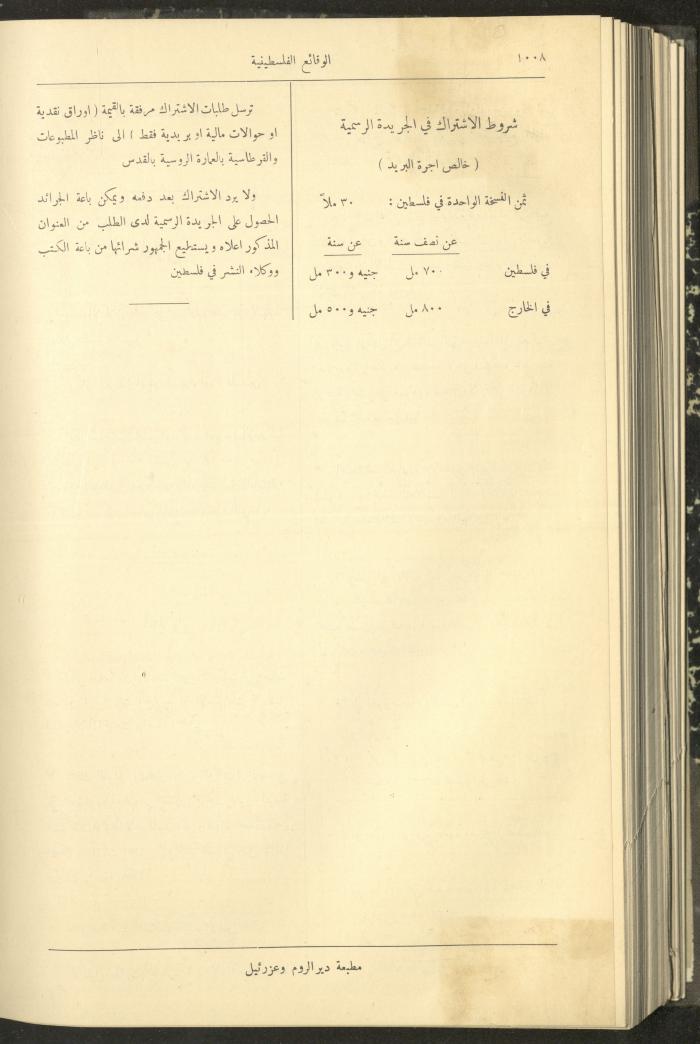 ١٠٠٨
الوقائع الفلسطينية
شروط الاشتراك في الجريدة الرسمية
( خالص اجرة البريد )
ثمن النسخة الواحدة في فلسطين : ٣٠ ملاً
عن نصف سنة عن سنة
في فلسطين ٧٠٠ مل جنيه و٣٠٠ مل
في الخارج ٨٠٠ مل جنيه و٥٠٠ مل
ترسل طلبات الاشتراك مرفقة بالقيمة ( اوراق نقدية
او حوالات مالية او بريدية فقط ) الى ناظر المطبوعات
والقرطاسية بالعمارة الروسية بالقدس
ولا يرد الاشتراك بعد دفعه ويمكن باعة الجرائد
الحصول على الجريدة الرسمية لدى الطلب من العنوان
المذكور اعلاه ويستطيع الجمهور شرائها من باعة الكتب
ووكلاء النشر في فلسطين
مطبعة دير الروم وعزرئيل